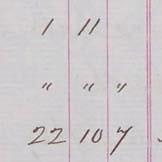 1 11
" " "
22 10 7